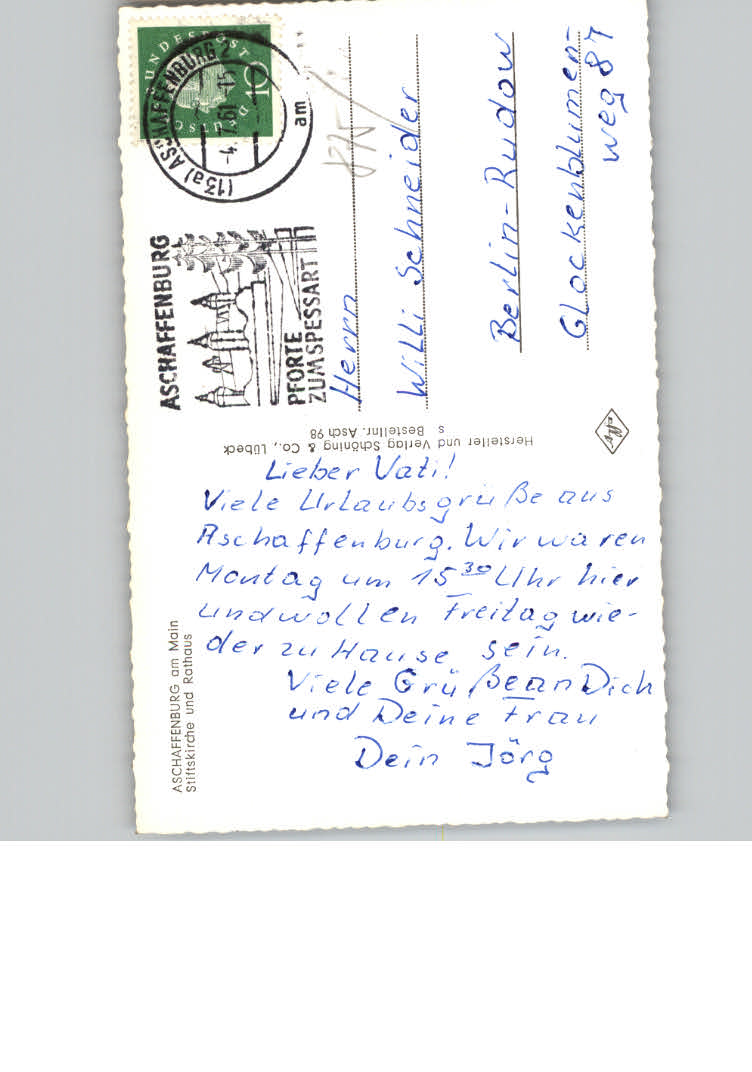 Lieber Vati!
Viele Urlaubsgrüße aus
Aschaffenburg. Wir waren
Montag um 15 30 Uhr hier
und wollen Freitag wie-
der zu Hause sein.
Viele Grüße an Dich
und Deine Frau
Dein Jörg
ASCHAFFENBURG am Main
Stiftskirche und Rathaus
Hersteller und Verlag Schöning & Co., Lübeck
s Bestellnr. Asch 98
Herrn
Willi Schneider
Berlin-Rudow
Glockenblumen-
weg 87
ASCHAFFENBURG
PFORTE
ZUM SPESSART
(13a) ASCHAFFENBURG 2
am
DEUTSCHE
BUNDESPOST
10